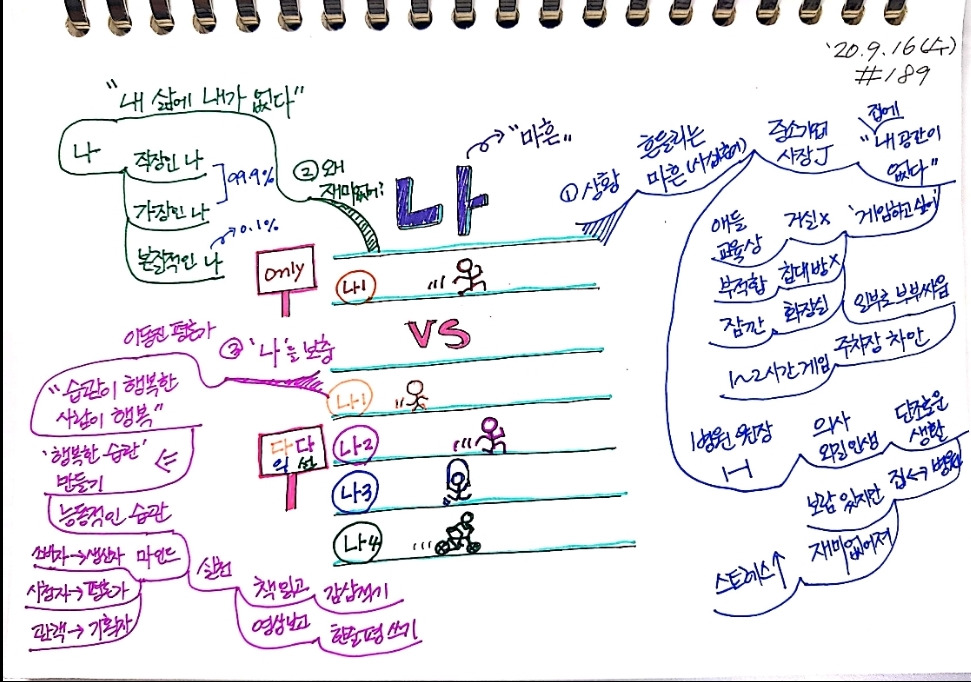 '20.9.16(수)
#189
"내 삶에 내가 없다"
나
직장인 나
가장인 나
99.9%
본질적인 나
0.1%
② 왜
재미없어?
나
"마흔"
① 상황
흔들리는
마흔(사십춘기)
중소기업
사장 J
집에
"내 공간이
없다"
'게임하고 싶어'
애들
교육상
거실 X
부적합
침대방 X
잠깐
화장실
일부로 부부싸움
1~2시간 게임
주차장 차안
병원 원장
H
의사
외길 인생
단조로운
생활
보람 있지만
집↔병원
스트레스↑
재미없어져
only
나1
VS
나1
다다
익선
나2
나3
나4
③ '나'를 보충
이동진 평론가
"습관이 행복한
사람이 행복"
'행복한 습관'
만들기
능동적인 습관
소비자→생산자
마인드
시청자→평론가
관객→기획자
실천
책 읽고
감상 적기
영상보고
한줄평 쓰기